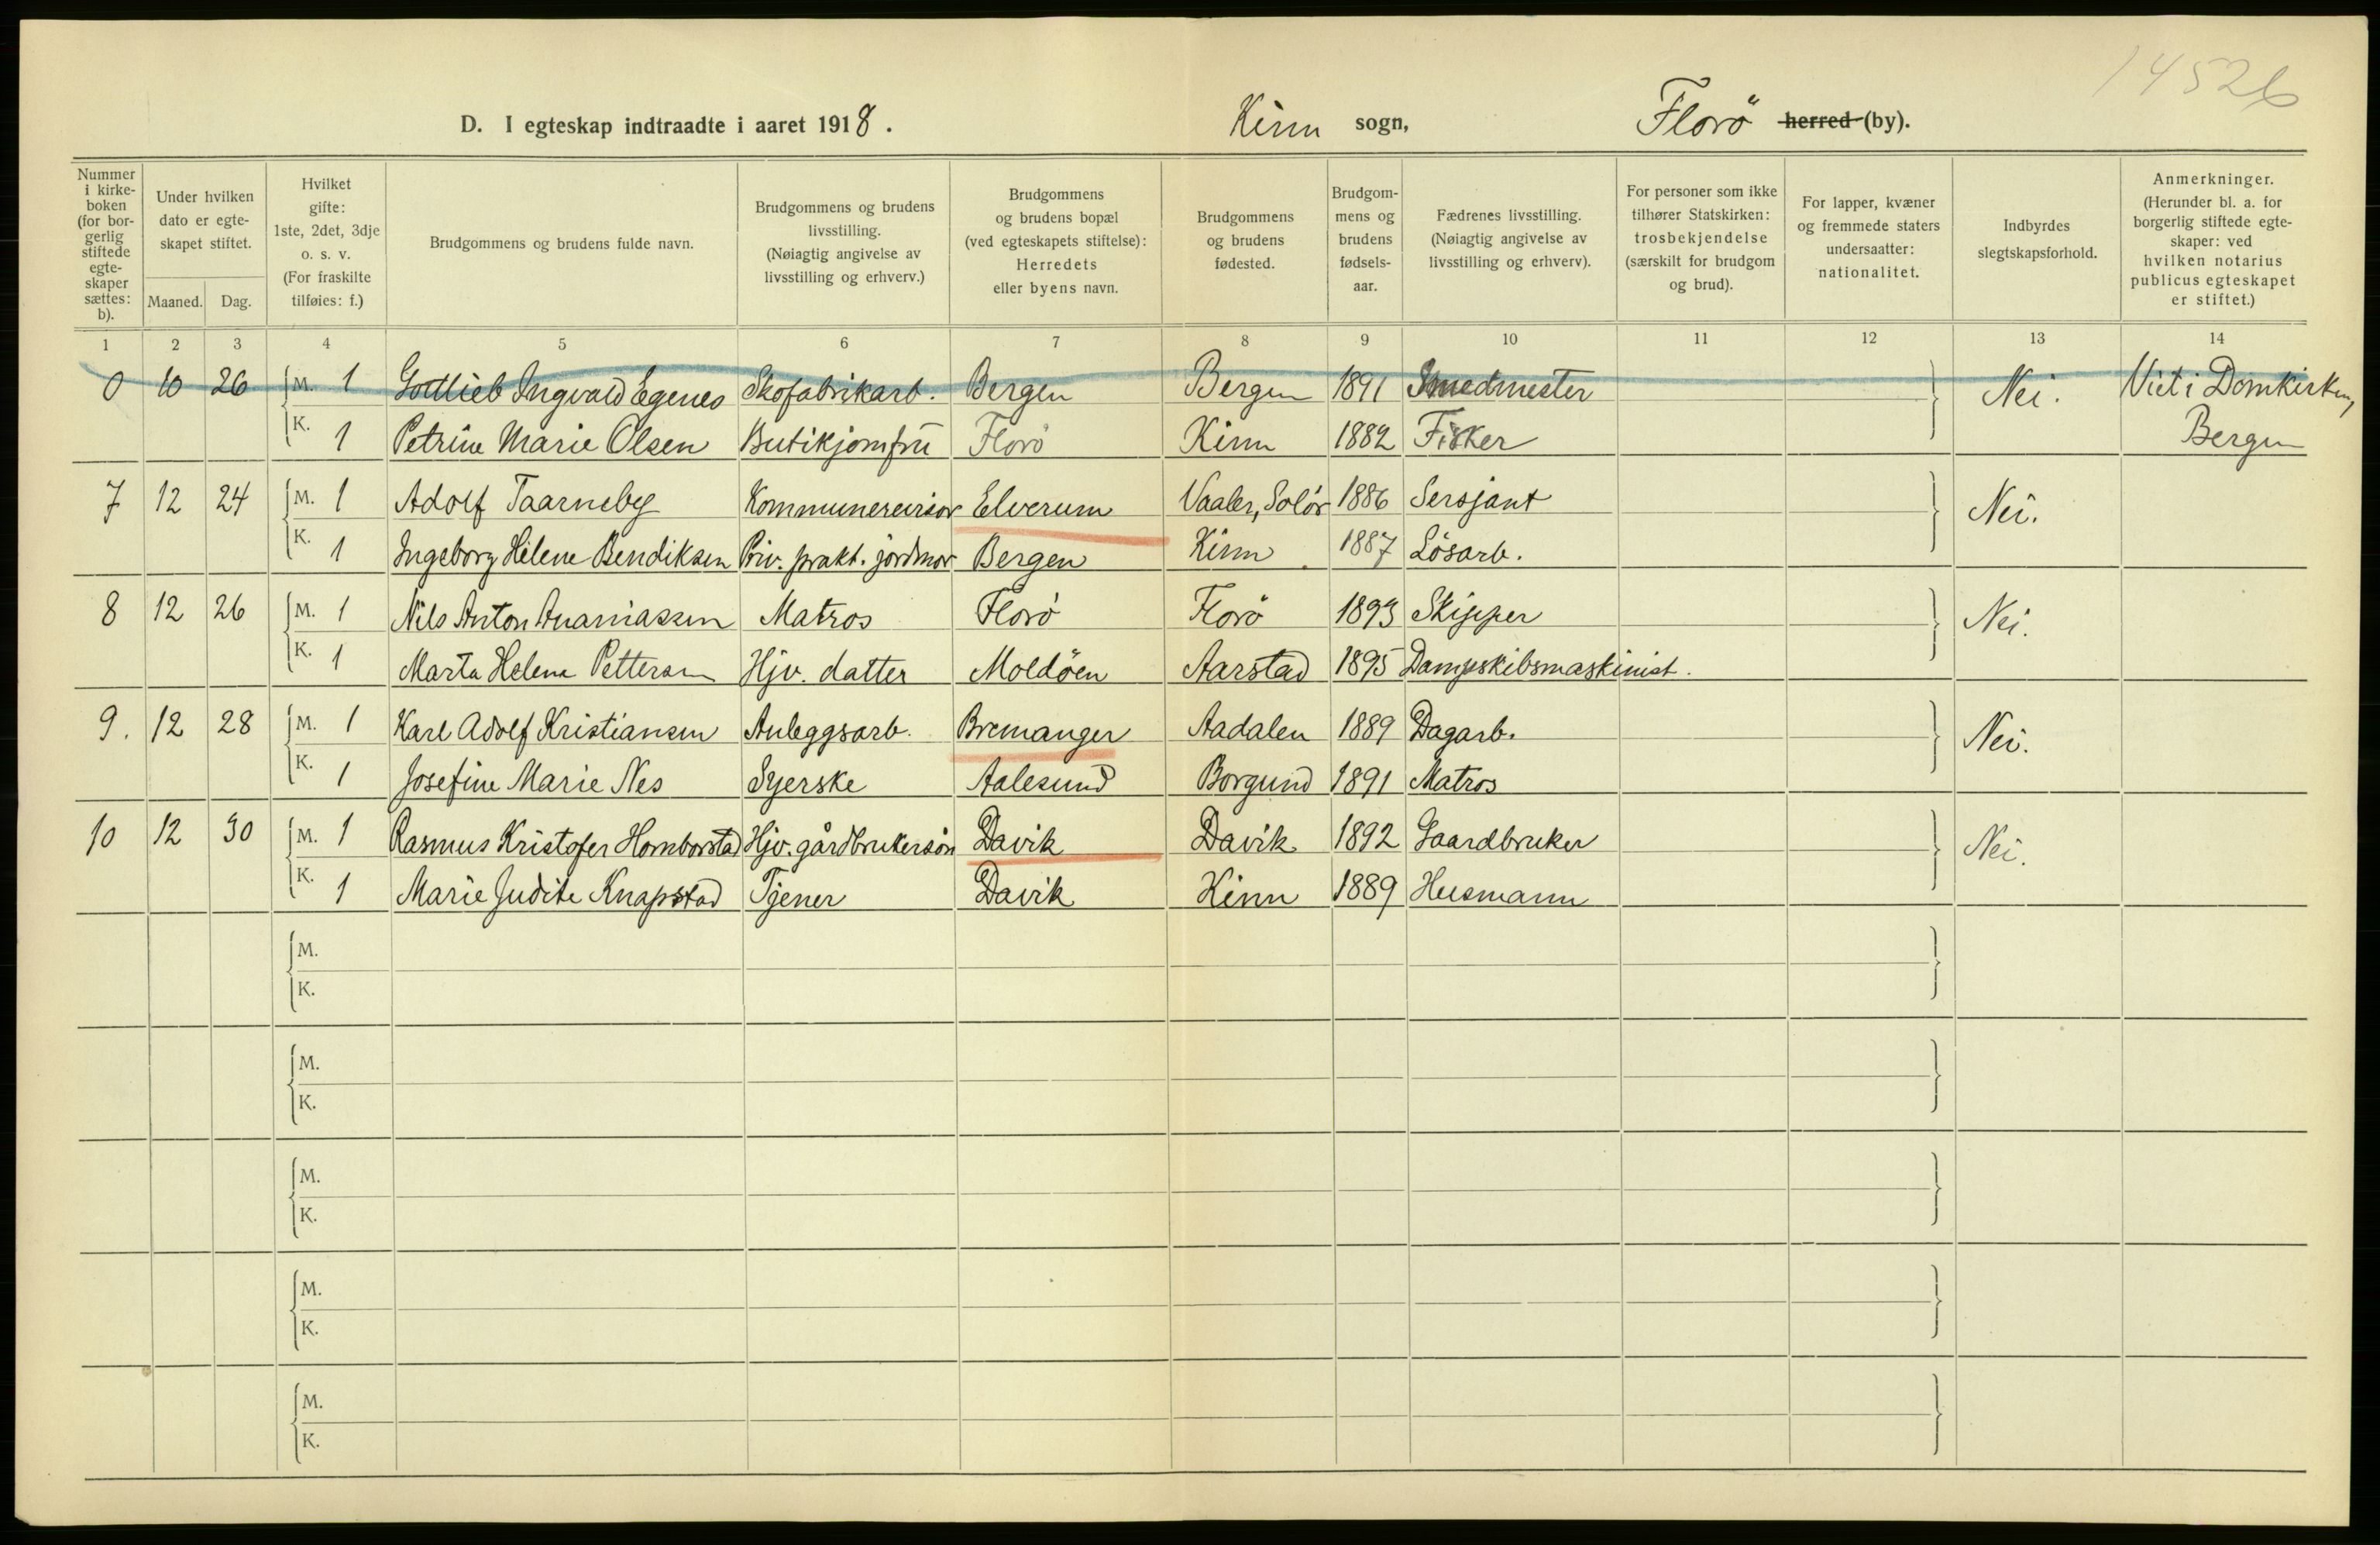 14526
D. I egteskap indtraadte i aaret 1918. Kinn sogn, Florö herred (by).
Nummer i kirkeboken (for borgerlig stiftede egteskaper sættes: b).
Under hvilken dato er egteskapet stiftet.
Maaned. Dag.
Hvilket gifte: 1ste, 2det, 3dje o. s. v. (For fraskilte tilføies: f.)
Brudgommens og brudens fulde navn.
Brudgommens og brudens livsstilling. (Nøiagtig angivelse av livsstilling og erhverv.)
Brudgommens og brudens bopæl (ved egteskapets stiftelse): Herredets eller byens navn.
Brudgommens og brudens fødested.
Brudgommens og brudens fødselsaar.
Fædrenes livsstilling. (Nøiagtig angivelse av livsstilling og erhverv).
For personer som ikke tilhører Statskirken: trosbekjendelse (særskilt for brudgom og brud).
For lapper, kvæner og fremmede staters undersaatter: nationalitet.
Indbyrdes slegtskapsforhold.
Anmerkninger. (Herunder bl. a. for borgerlig stiftede egteskaper: ved hvilken notarius publicus egteskapet er stiftet.)
1 2 3 4 5 6 7 8 9 10 11 12 13 14
0 10 26 M. 1 Gottlieb Ingvald Egenes Skofabrikarb. Bergen Bergen 1891 Smedmester Nei. Viet i Domkirken,
K. 1 Petrine Marie Olsen Butikjomfru Florö Kinn 1882 Fisker Bergen
7 12 24 M. 1 Adolf Taarneby Kommunerevisor Elverum Vaaler, Solör 1886 Sersjant Nei.
K. 1 Ingeborg Helene Bendiksen Priv. prakt. jordmor Bergen Kinn 1887 Lösarb.
8 12 26 M. 1 Nils Anton Ananiassen Matros Florö Florö 1893 Skipper Nei.
K. 1 Marta Helena Pettersen Hjv. datter Moldöen Aarstad 1895 Dampskibsmaskinist.
9. 12 28 M. 1 Karl Adolf Kristiansen Anleggsarb. Bremanger Aadalen 1889 Dagarb. Nei.
K. 1 Josefine Marie Nes Syerske Aalesund Borgund 1891 Matros
10 12 30 M. 1 Rasmus Kristofer Hornborstad Hjv. gårdbrukersön Davik Davik 1892 Gaardbruker Nei.
K. 1 Marie Judite Knapstad Tjener Davik Kinn 1889 Husmann
M.
K.
M.
K.
M.
K.
M.
K.
M.
K.